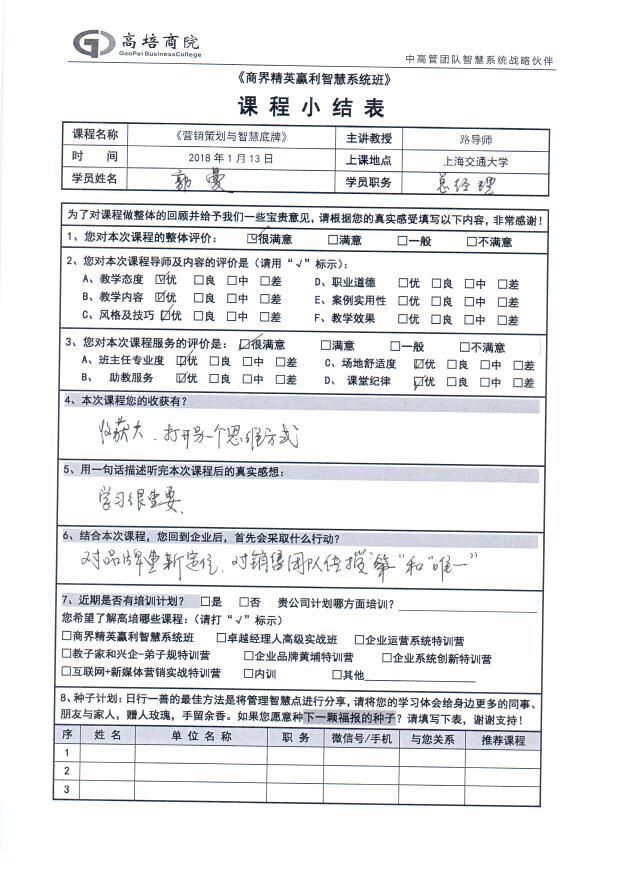 高培商院
GaoPei BusinessCollege
中高管团队智慧系统战略伙伴
《商界精英赢利智慧系统班》
课程小结表
课程名称 《营销策划与智慧底牌》 主讲教授 路导师
时 间 2018年1月13日 上课地点 上海交通大学
学员姓名 郭曼 学员职务 总经理
为了对课程做整体的回顾并给予我们一些宝贵意见,请根据您的真实感受填写以下内容,非常感谢!
1、您对本次课程的整体评价: ☑很满意 □满意 □一般 □不满意
2、您对本次课程导师及内容的评价是(请用“√”标示):
A、教学态度 ☑优 □良 □中 □差 D、职业道德 □优 □良 □中 □差
B、教学内容 ☑优 □良 □中 □差 E、案例实用性 □优 □良 □中 □差
C、风格及技巧 ☑优 □良 □中 □差 F、教学效果 □优 □良 □中 □差
3、您对本次课程服务的评价是: ☑很满意 □满意 □一般 □不满意
A、班主任专业度 ☑优 □良 □中 □差 C、场地舒适度 ☑优 □良 □中 □差
B、 助教服务 ☑优 □良 □中 □差 D、 课堂纪律 ☑优 □良 □中 □差
4、本次课程您的收获有?
收获大、打开另一个思维方式
5、用一句话描述听完本次课程后的真实感想:
学习很重要、
6、结合本次课程,您回到企业后,首先会采取什么行动?
对品牌重新定位、对销售团队传授“第一”和“唯一”
7、近期是否有培训计划? □是 □否 贵公司计划哪方面培训?
您希望了解高培哪些课程:(请打“√”标示)
□商界精英赢利智慧系统班 □卓越经理人高级实战班 □企业运营系统特训营
□教子家和兴企-弟子规特训营 □企业品牌黄埔特训营 □企业系统创新特训营
□互联网+新媒体营销实战特训营 □内训 □其他
8、种子计划:日行一善的最佳方法是将管理智慧点进行分享,请将您的学习体会给身边更多的同事、
朋友与家人,赠人玫瑰,手留余香。如果您愿意种下一颗福报的种子?请填写下表,谢谢支持!
序 姓 名 单 位 名 称 职 务 微信号/手机 与您关系 推荐课程
1
2
3